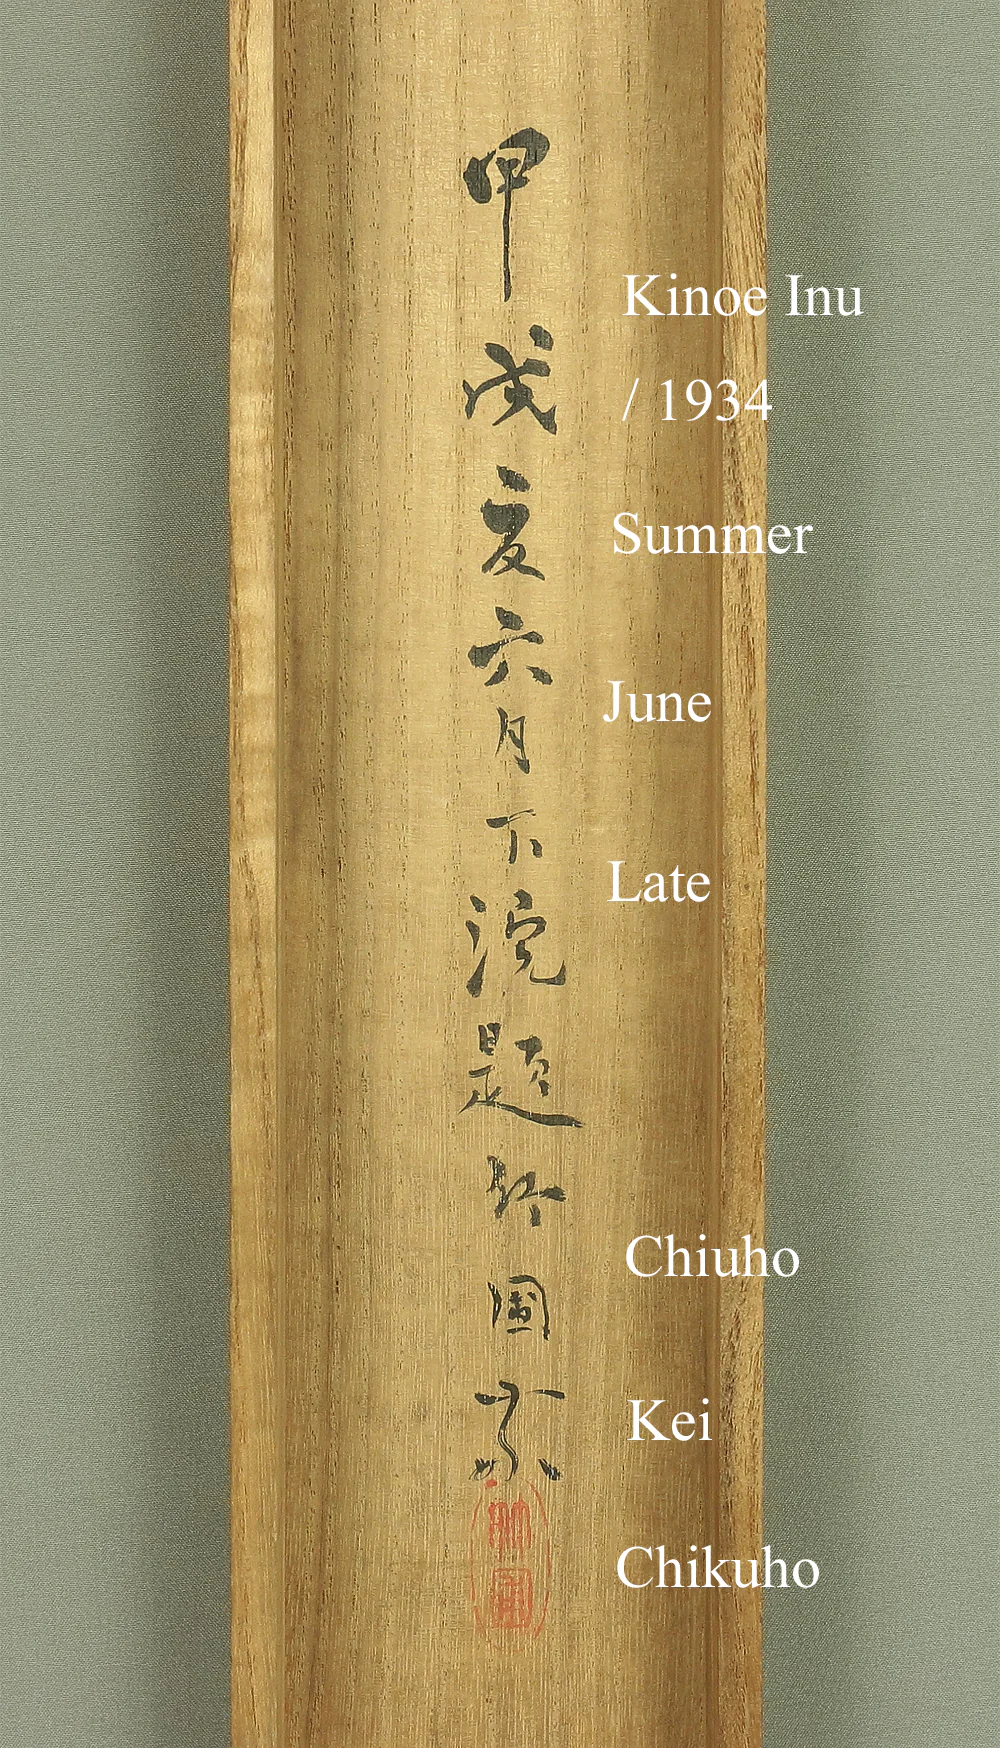 甲戌夏六月下浣題竹圃
竹圃
Kinoe Inu
/ 1934
Summer
June
Late
Chiuho
Kei
Chikuho